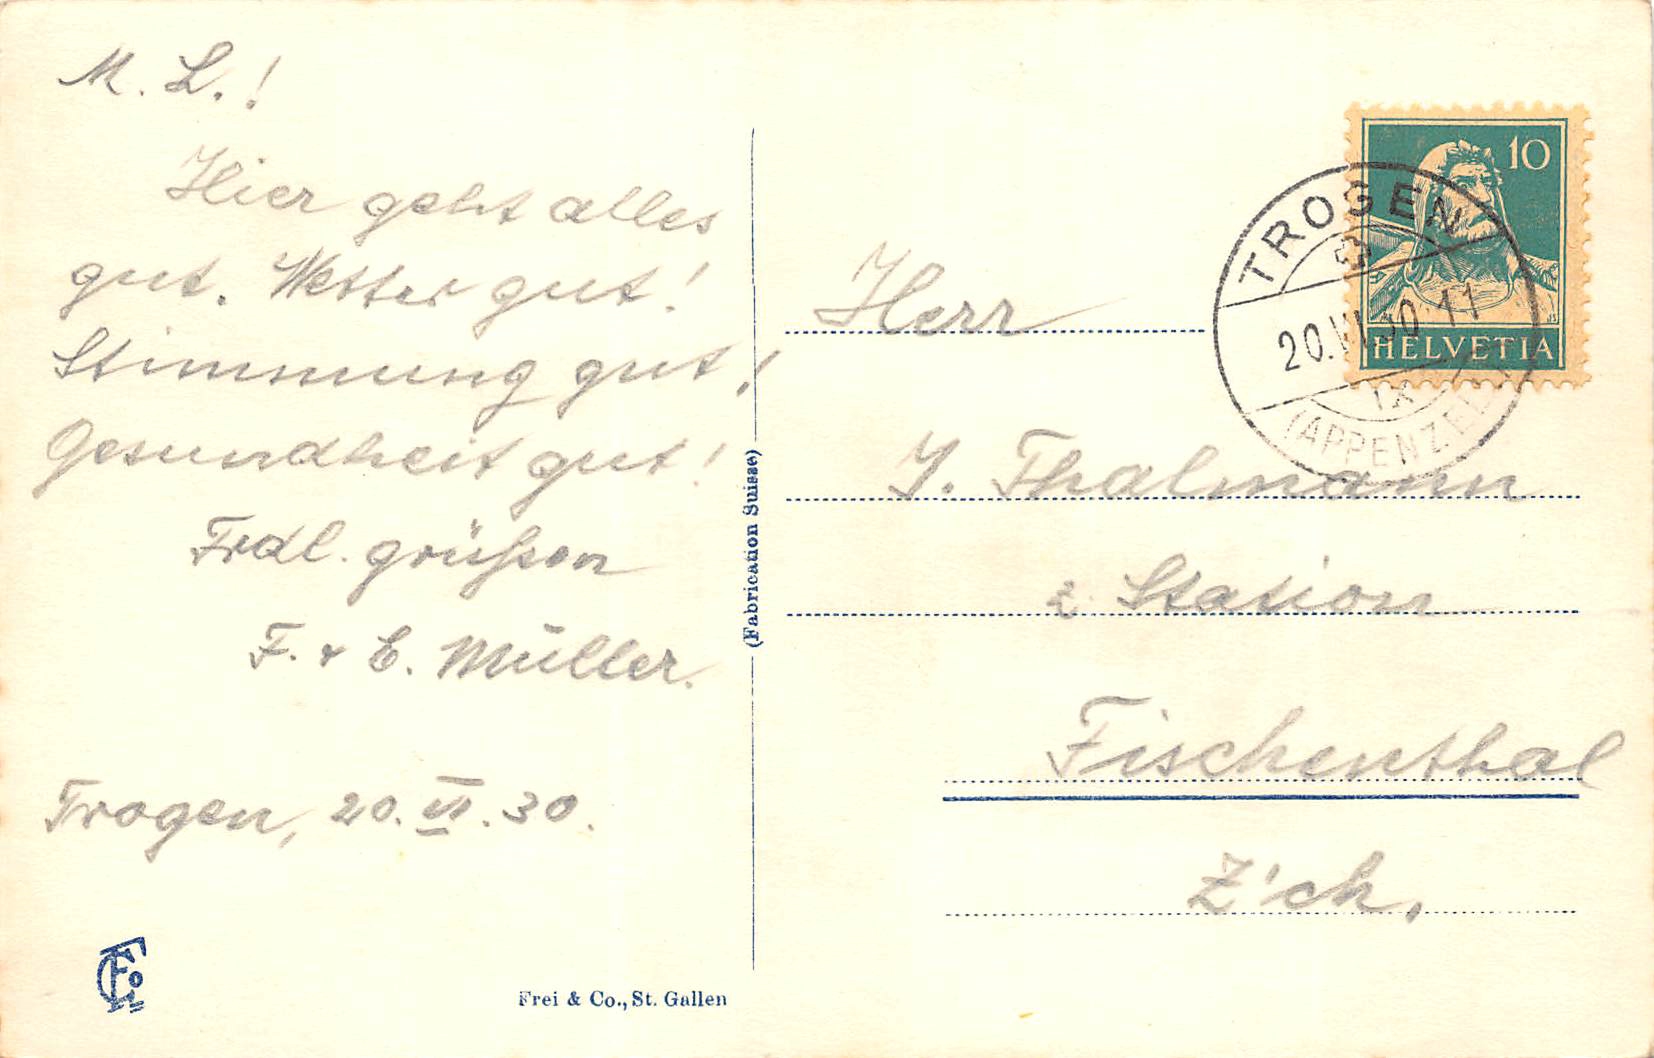 M. L.!
Hier geht alles
gut. Wetter gut!
Stimmung gut!
Gesundheit gut!
Frdl. grüßen
F. & E. Müller.
Trogen, 20. VI. 30.
Frei & Co., St. Gallen
(Fabrication Suisse)
10
HELVETIA
TROGEN
20.VI.30 11
IX
(APPENZELL)
Herr
J. Thalmann
z. Station
Fischenthal
Z'ch.